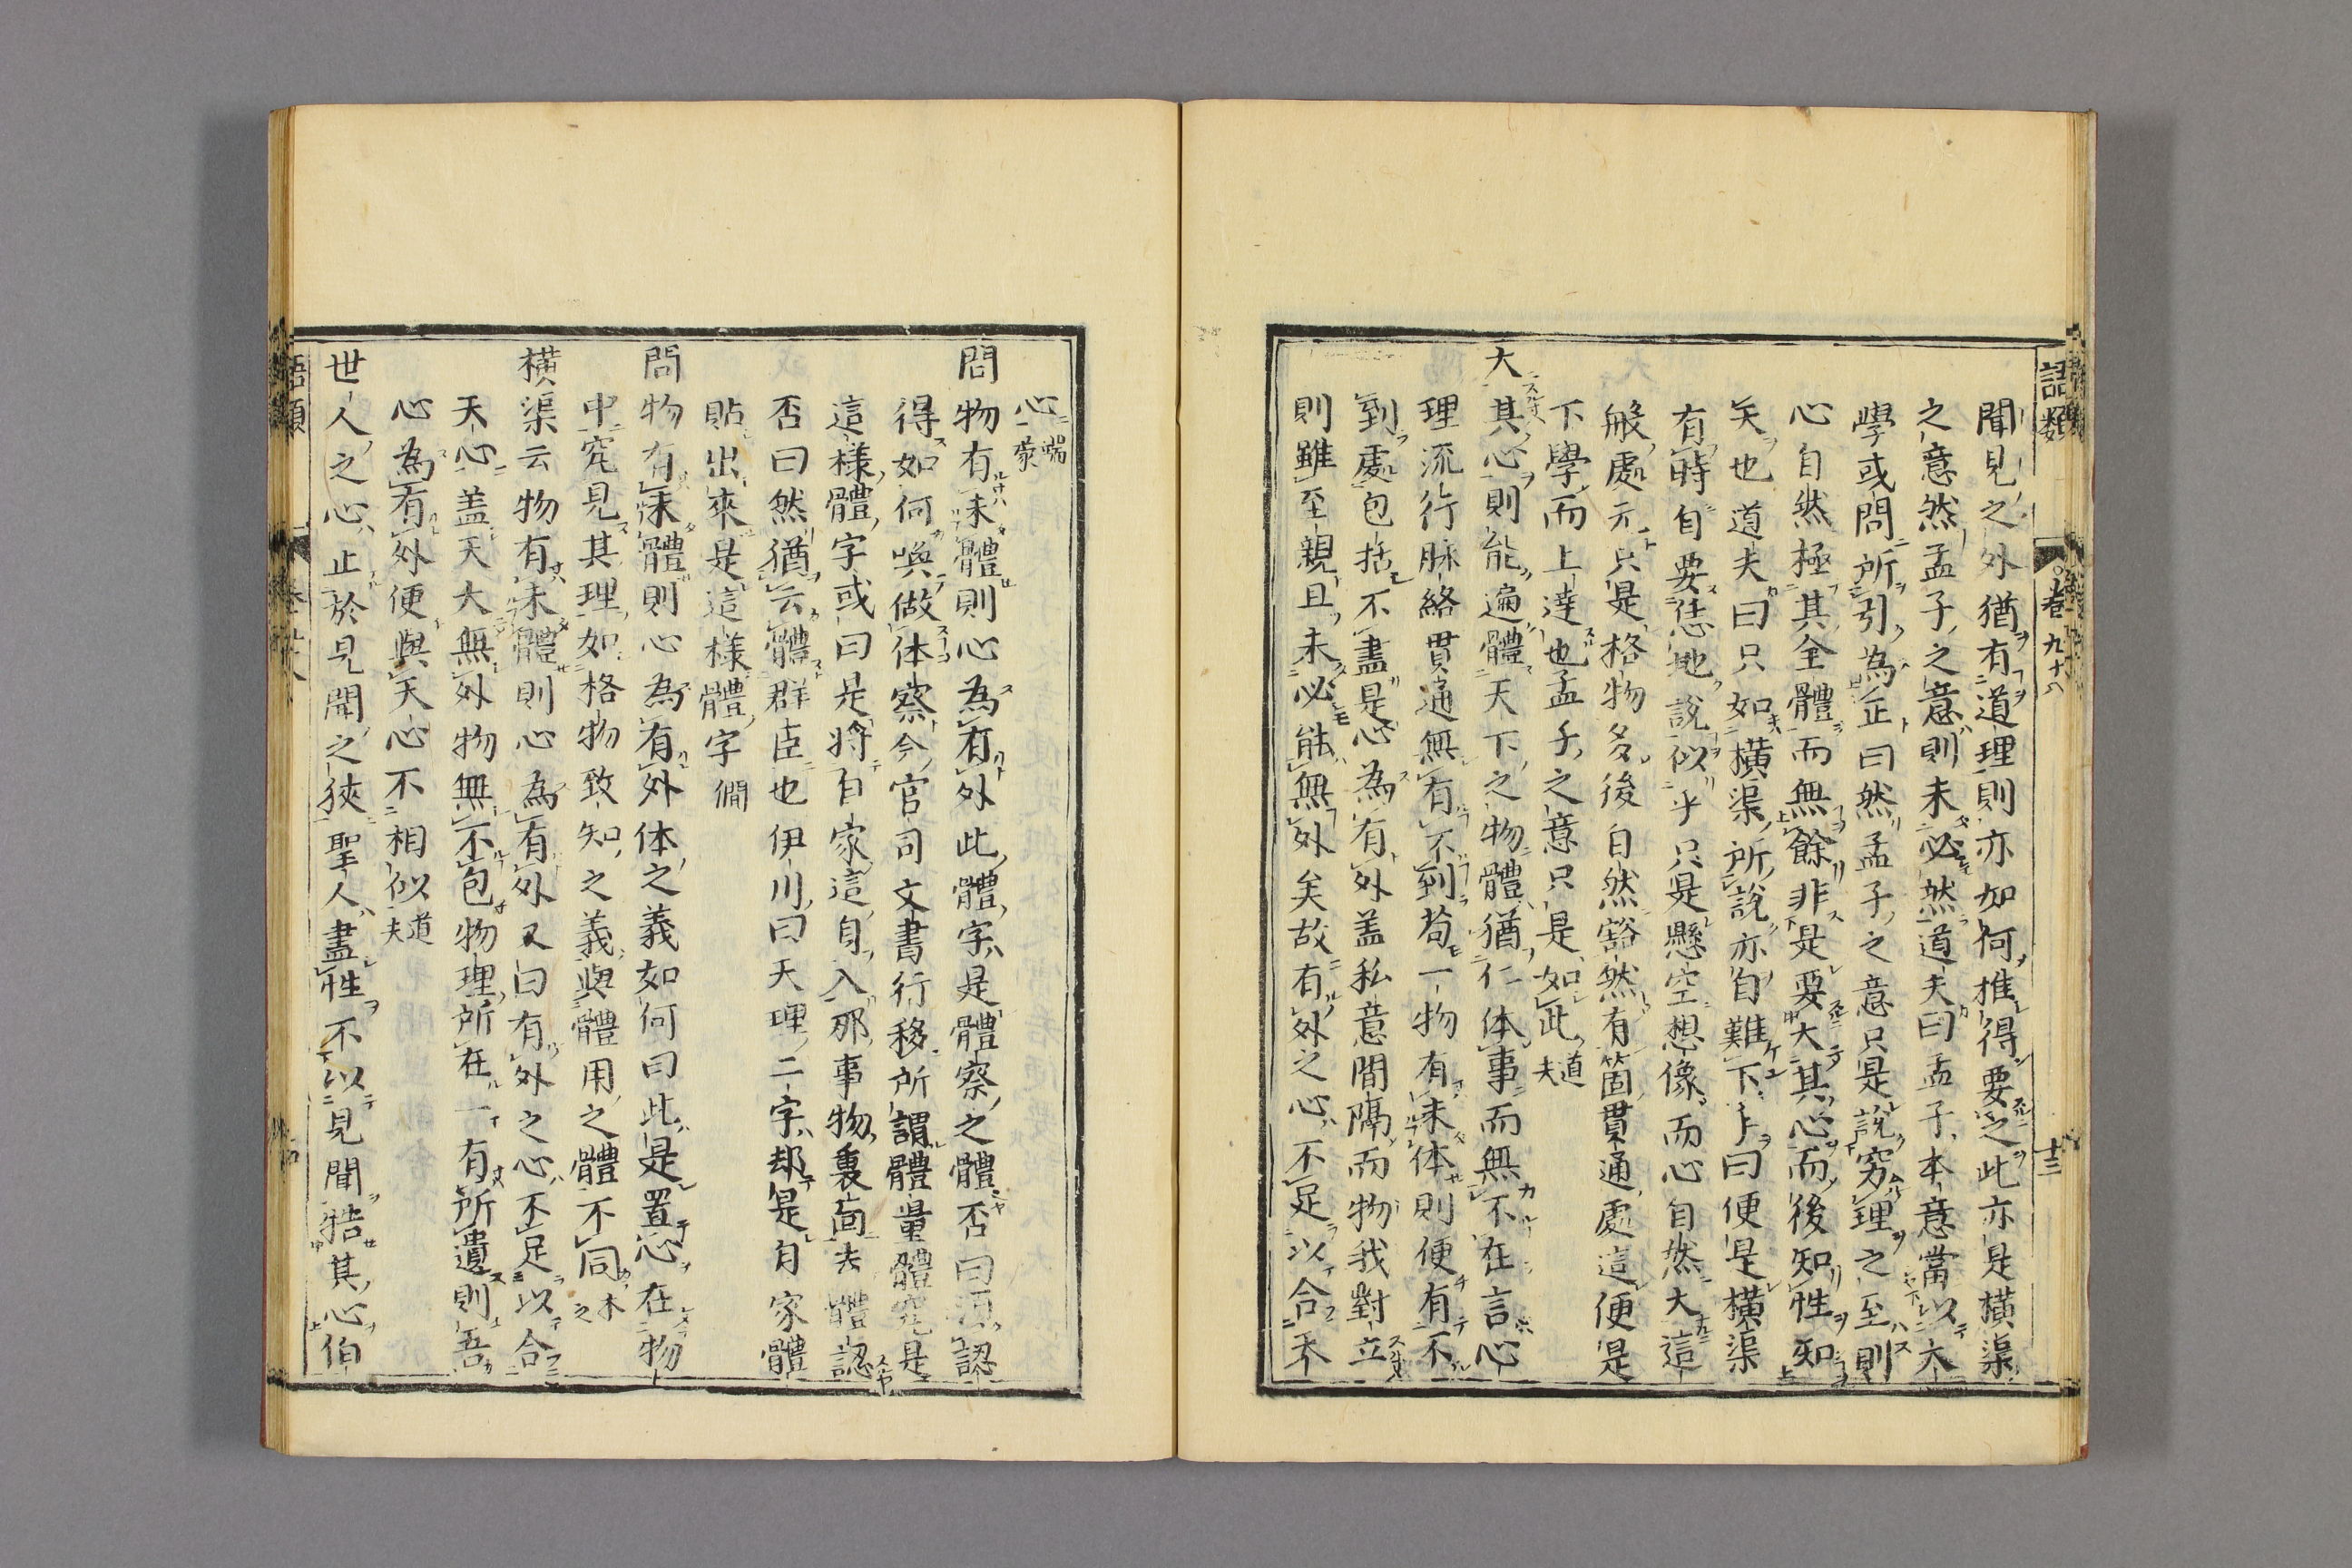 語類 卷九十八 十三
聞見之外猶有道理則亦如何推得要之此亦是橫渠
之意然孟子之意則未必然道夫曰孟子本意當以大
學或問所引為正曰然孟子之意只是說窮理之至則
心自然極其全體而無餘非是要大其心而後知性知
天也道夫曰只如橫渠所說亦自難下手曰便是橫渠
有時自要恁地說似乎只是懸空想像而心自然大這
般處元只是格物多後自然豁然有箇貫通處這便是
下學而上達也孟子之意只是如此道夫
大其心則能遍體天下之物體猶仁体事而無不在言心
理流行脉絡貫通無有不到苟一物有未体則便有不
到處包括不盡是心為有外盖私意間隔而物我對立
則雖至親且未必能無外矣故有外之心不足以合天
心端蒙
問物有未體則心為有外此體字是體察之體否曰須認
得如何喚做体察今官司文書行移所謂體量體究是
這樣體字或曰是將自家這身入那事物裏面去體認
否曰然猶云體群臣也伊川曰天理二字却是自家體
貼出來是這樣體字僩
問物有未體則心為有外体之義如何曰此是置心在物
中究見其理如格物致知之義與體用之體不同木之
橫渠云物有未體則心為有外又曰有外之心不足以合
天心盖天大無外物無不包物理所在一有所遺則吾
心為有外便與天心不相似道夫
世人之心止於見聞之狹聖人盡性不以見聞梏其心伯
語類